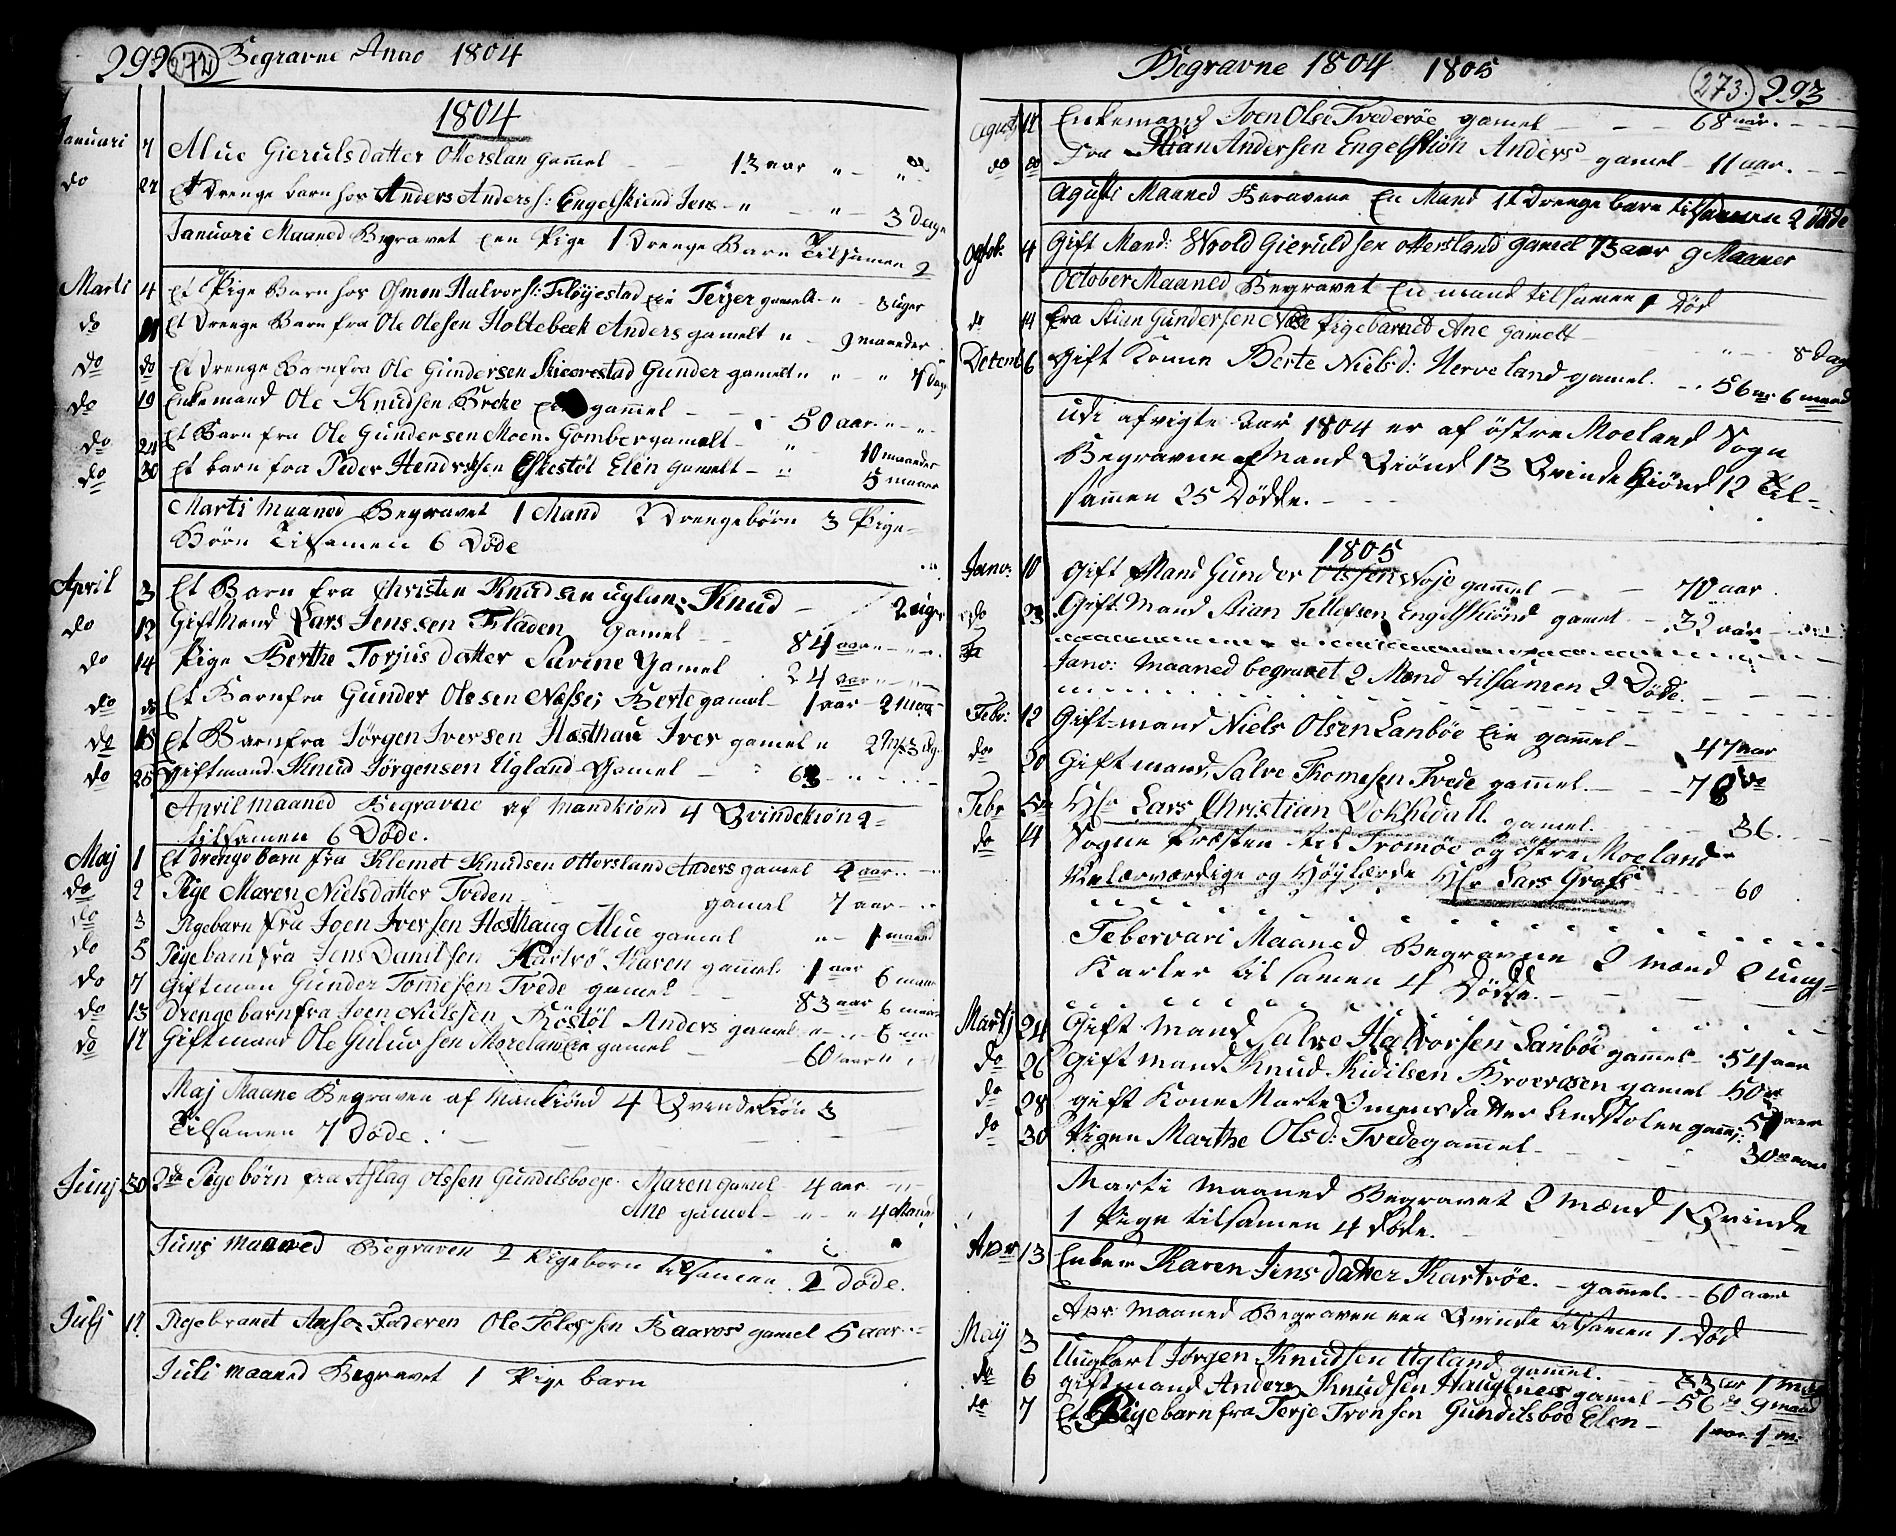 292 272 Begravne Anno 1804
1804
Januari 7 Alue Gierulsdatter Otterslan gammel - 13 aar
do 27 Et Drenge barn hos Anders Anderss: Engelskiend Jens - 3 Dage
Januari Maaned Begravet een Pige 1 Drenge Barn Tilsamen 2
Marti 4 Et Pige Barn hos Osmon Halvors: Fløyestad Terjer gamelt - 3 uger
do Et Drenge Barn fra Ole Olesen Holtebeek Anders gamelt - 9 maaneder
do do Et Drenge Barn fra Ole Gundersen Gunder gamelt Dage
do 19 Enkemand Ole Knudsen gammel - 50 aar
do 24 Et Barn fra Ole Gundersen Moen Gomber gamelt - 10 maaneder
do 30 Et barn fra Peder Hendrichsen Eskestøl Elen gamelt - 5 maaner
Marti Maaned Begravet 1 Mand 2 Drengebørn 3 Pige-
Børn Tilsamen 6 Døde
April 3 Et Barn fra Christen Knudsen uglan: Knud - 2 uger
do 12 Gift Mand Lars Jenssen Fladen gamel - 84 aar
do 14 Pige Berthe Torjusdatter Savine Gamel 24 aar
do do Et Barn fra Gunder Olesen Næsse; Berte gamel - 1 aar 2 maa
do 18 Et Barn fra Jørgen Iversen Hasthau Iver gamel 2 M 3 Dg.
do 25 Giftmand Knud Jørgensen Ugland Gamel - 63
April maaned Begravne af Mandkiønd 4 Qvindekiøn 2
tilsamen 6 Døde.
Maj 1 Et drenge barn fra Klemet Knudsen Ottersland Anders gamel 2 aar
do 2 Pige Maren Nielsdatter Tveden gamel 7 aar
do 3 Pigebarn fra Joen Iversen Hasthaug Alue gamel 1 maaned
do 5 Pige barn fra Jens Danilsen Kartrø Karen gammel 1 aar 6 maan
do 7 Giftman Gunder Tomesen Tvede gamel - 83 aar 6 maan
do 13 Drenge barn fra Joen Nielssen Køstøl Anders gamel - 6 m
do 17 Giftmand Ole Guluvsen gamel - 60 aar
Maj Maane Begraven af Mankiønd 4 Qvindekiøn 3
Tilsamen 7 Døde.
Junj 30 2de Pigebørn fra Aslag Olssen Gundelsboeje Maren gamel - 4 aar
Ane gamel - 4 Maaned
Junj Maaned Begraven 2 Pigebørn tilsamen 2 Døde.
Julj 17 Pigebranet Faderen Ole gamel 5 aar
Juli Maaned Begravet 1 Pige barn
Begravne 1804 1805 273. 293
Agust 12 Enkemand Joen Olse Tvederøe gamel - 68 aar.
do do Fra Stian Andersen Engelskiøn Anders gamel - 11 aar.
Agusti Maaned Beravene En Mand 1t Drenge barn tilsamen 2 Døde
Octob. 4 Gift Mand: Woold Gieruldsen Ottersland gamel 73 aar 9 Maaner
October Maaned Begravet En mand tilsamen 1 Død
do 14 fra Stian Gundersen Næse Pigebarnet Ane gamelt - 8 Dag
Decemb 6 Gift Konne Berte Nielsd: Herveland gamel. 56 ar 6 maand
udi afvigte Aar 1804 er af Østre Moeland Sogn
Begravne Mand Qiønd 13 Qvinde kiønd 12 Til-
sammen 25 Dødde.
1805
Janv: 10 Gift Mand Gunder Olssen gammel - 70 aar
do 23 Gift Mand Stian Tellefsen Engelskiønd gamel - 32 aar
Janv: Maaned begravet 2 Mænd tilsamen 2 Døde.
Febr: 12 Gift-mand Niels Olsen Lanbøe gammel - 47 aar
do 20 Gift mand Salve Thomesen Tvede gammel. - 78 do
Febr 5te Hr Lars Christian Dokkedall gamel. 36.
do 14 Sogne Præsten til Tromøe og Østre Moeland
Velærværdige og Høylærde Hr Lars Grafs 60
Feberuari Maaned Begravne 2 mænd 2 ung-
Karler tilsamen 4 Dødde.
Martj 24 Gift Mand Salve Halvorsen Lanbøe gammel - 54 aar
do 26 Gift mand Knud Kidilsen gamel 50
do 28 gift Kone Marte Omensdatter gammel 59 aar
do 30 Pigen Marthe Olsd: Tvede gammel - 30 aar
Marti Maaned Begravet 2 Mænd 1 Qvinde
1 Pige tilsamen 4 Døde.
Apr 13 Enken Karen Jensdatter Kartrøe. - gammel - 60 aar
Apr: Maaned Begraven een Qvinde tilsamen 1 Død
Maij 3 Ungkarl Jørgen Knudsen Ugland gammel. 33 aar 1 maa
do 6 giftmand Anders Knudsen Haugenes gammel - 56 aar 9 maand
do 7 Et Pigebarn fra Terje Tronsen Gundelsboe Elen - 1 aar 1 m: